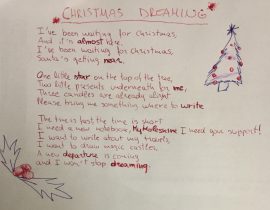 CHRISTMAS DREAMING
I've been waiting for Christmas,
And it's almost here.
I've been waiting for Christmas,
Santa's getting near.
One little star on the top of the tree,
Two little presents underneath for me,
Three candles are already alight
Please bring me something where to write
The time is the time is short
I need a new notebook, MyMoleskine I need your support!
I want to write about my travels,
I want to draw magic castles,
A new departure is coming
and I won't stop dreaming.